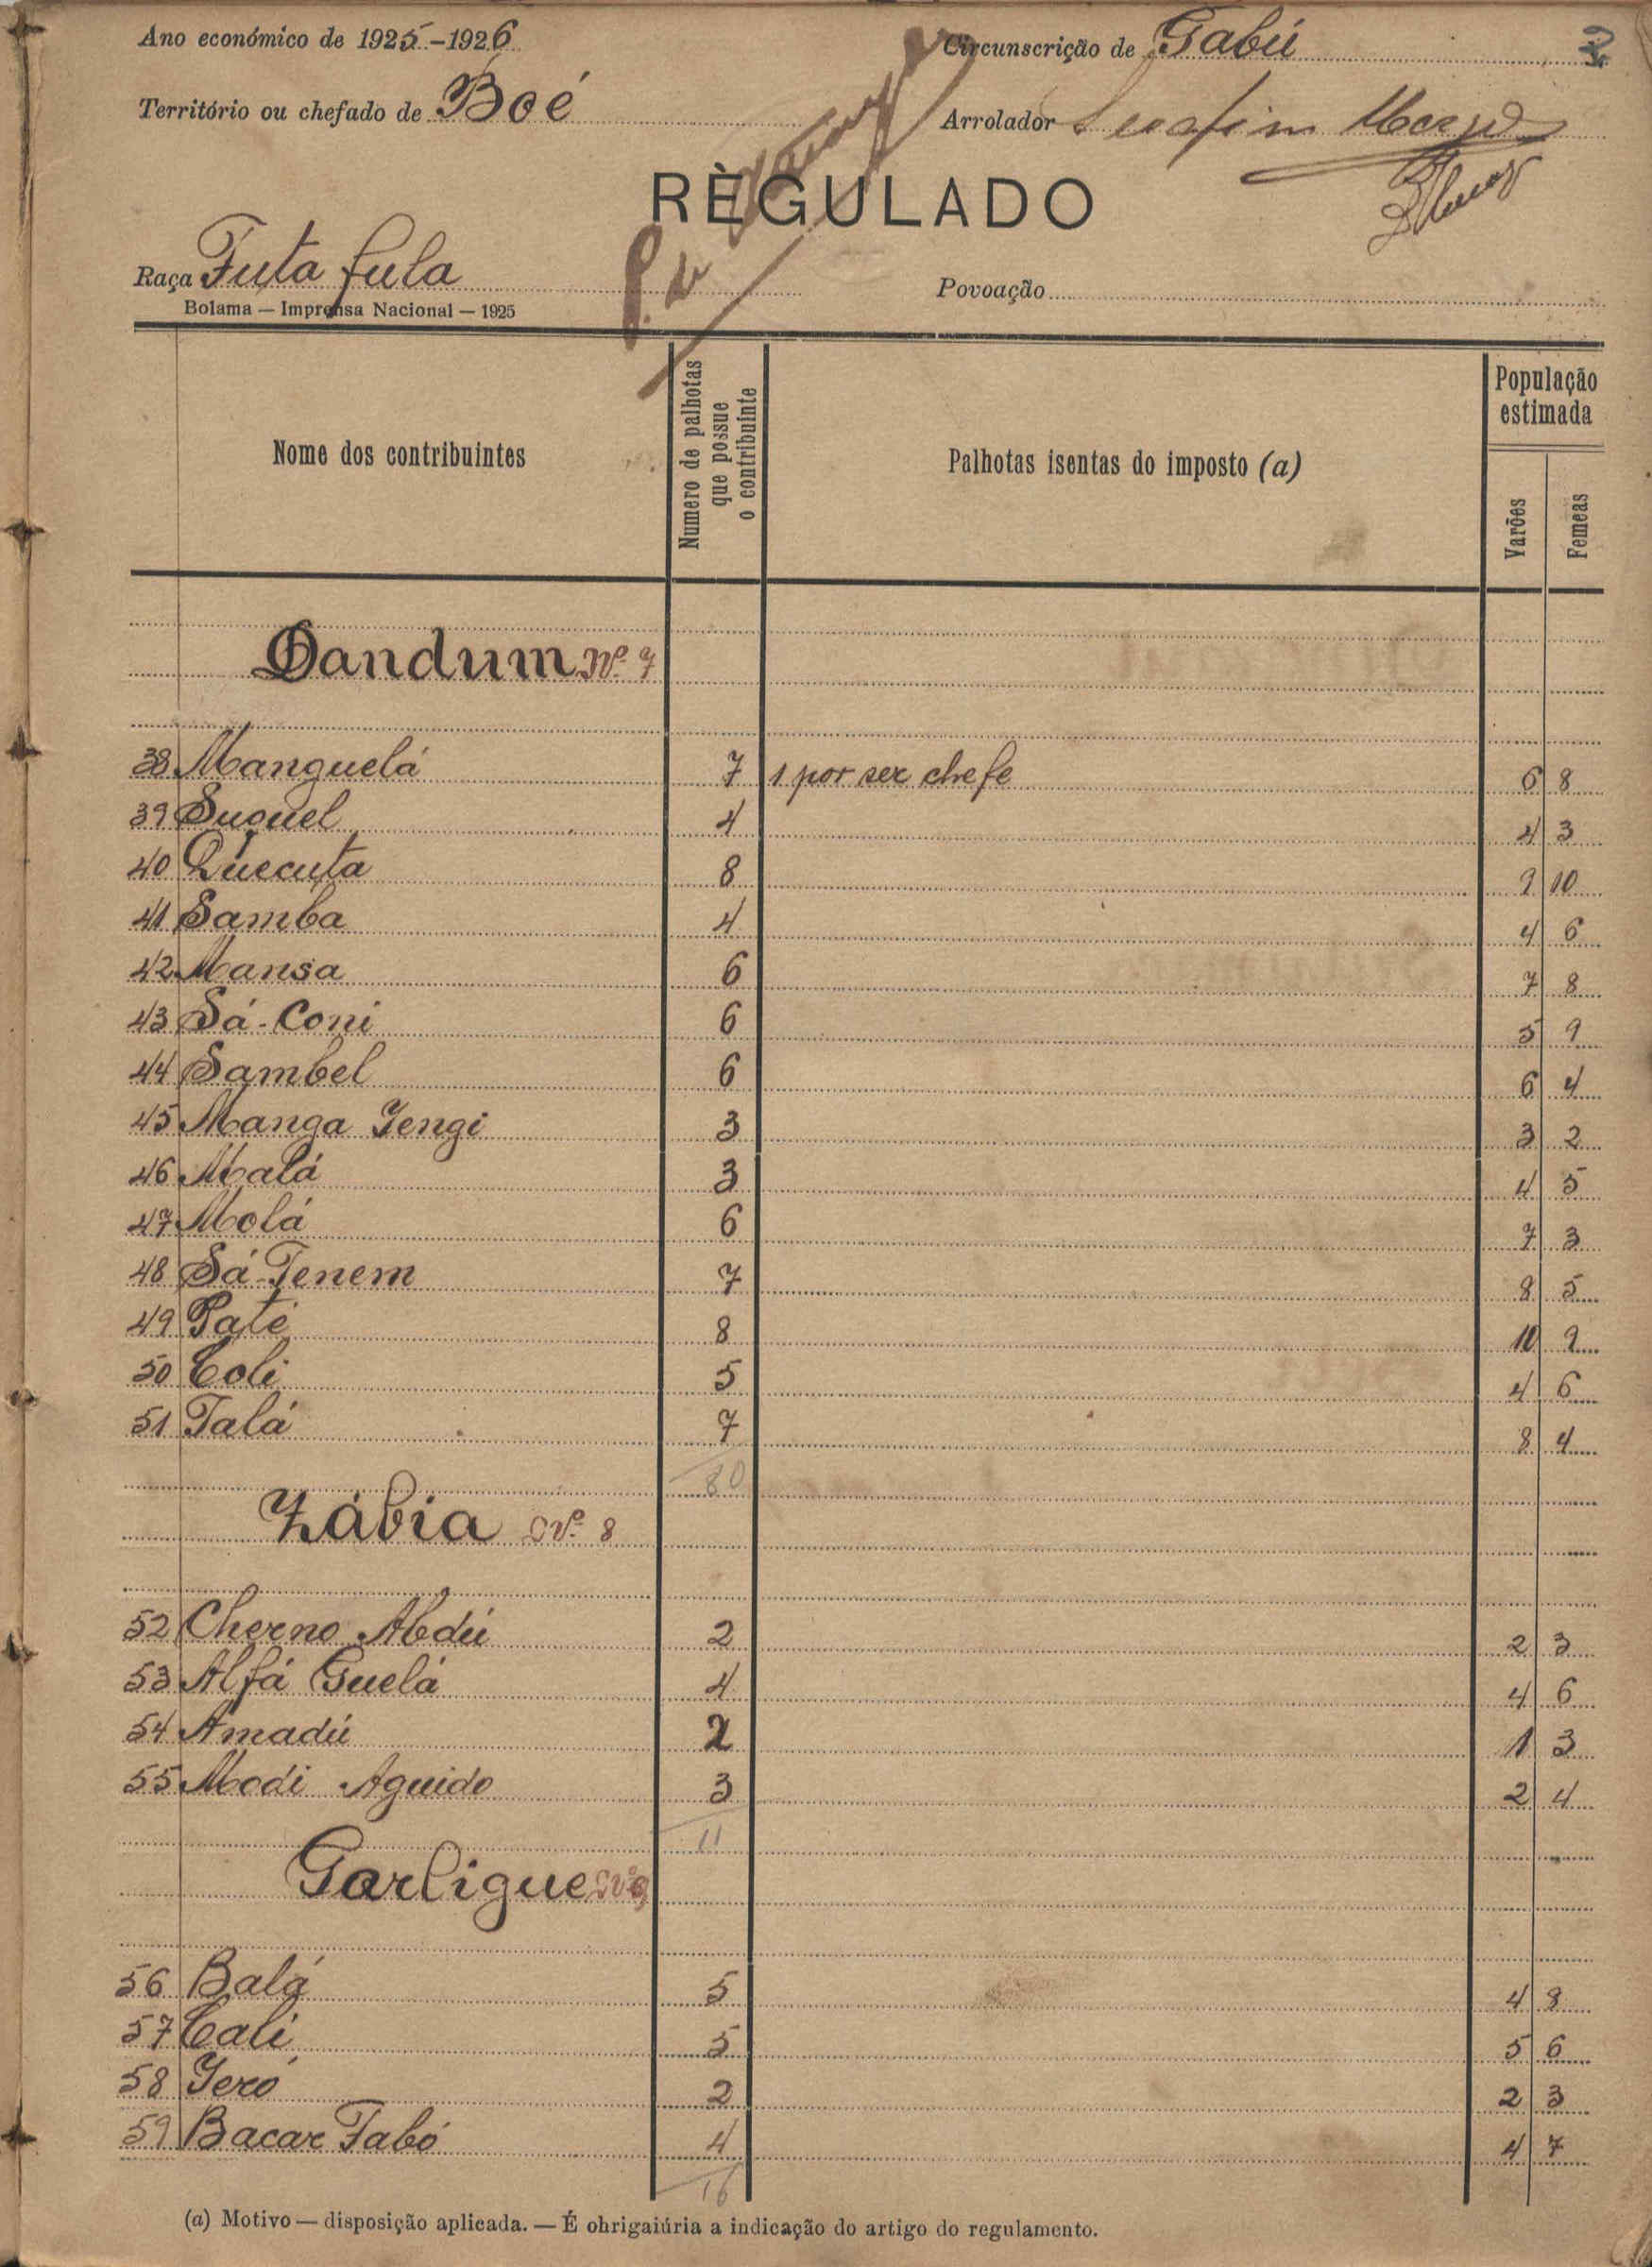 Ano económico de 1925-1926 Circunscrição de Gabú
Território ou chefado de Boé Arrolador
RÈGULADO
Raça Futa fula Povoação
Bolama — Imprensa Nacional — 1925
Nome dos contribuintes Numero de palhotas que possue o contribuinte Palhotas isentas do imposto (a) População estimada
Varões Femeas
Dandum Nº 7
38 Manguelá 7 1 por ser chefe 6 8
39 Suquel 4 4 3
40 Quecuta 8 9 10
41 Samba 4 4 6
42 Mansa 6 7 8
43 Sá-Coni 6 5 9
44 Sambel 6 6 4
45 Manga Jengi 3 3 2
46 Malá 3 4 5
47 Molá 6 7 3
48 Sá-Tenem 7 8 5
49 Paté 8 10 9
50 Coli 5 4 6
51 Talá 7 8 4
80
Zábia Nº 8
52 Cherno Abdú 2 2 3
53 Alfá Guelá 4 4 6
54 Amadú 2 1 3
55 Modi Aguido 3 2 4
11
Garligue Nº 9
56 Balá 5 4 8
57 Cali 5 5 6
58 Jeró 2 2 3
59 Bacar Fabó 4 4 7
16
(a) Motivo — disposição aplicada. — É obrigaiúria a indicação do artigo do regulamento.